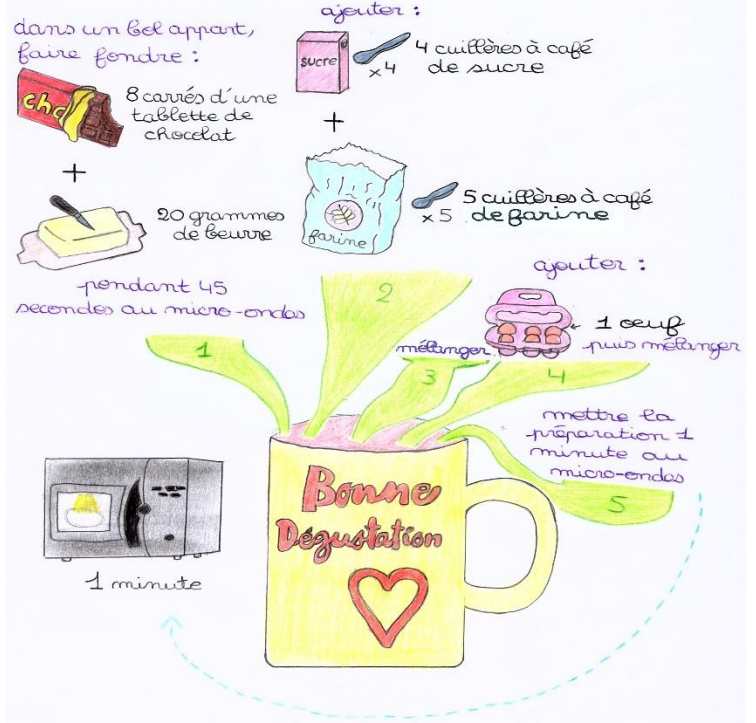 dans un bol appart,
faire fondre :
cho
8 carrés d'une
tablette de
chocolat
+
20 grammes
de beurre
pendant 45
secondes au micro-ondes
1
ajouter :
sucre
x4
4 cuillères à café
de sucre
+
farine
x5
5 cuillères à café
de farine
2
mélanger
3
ajouter :
1 oeuf
puis mélanger
4
mettre la
préparation 1
minute au
micro-ondes
5
1 minute
Bonne
Dégustation